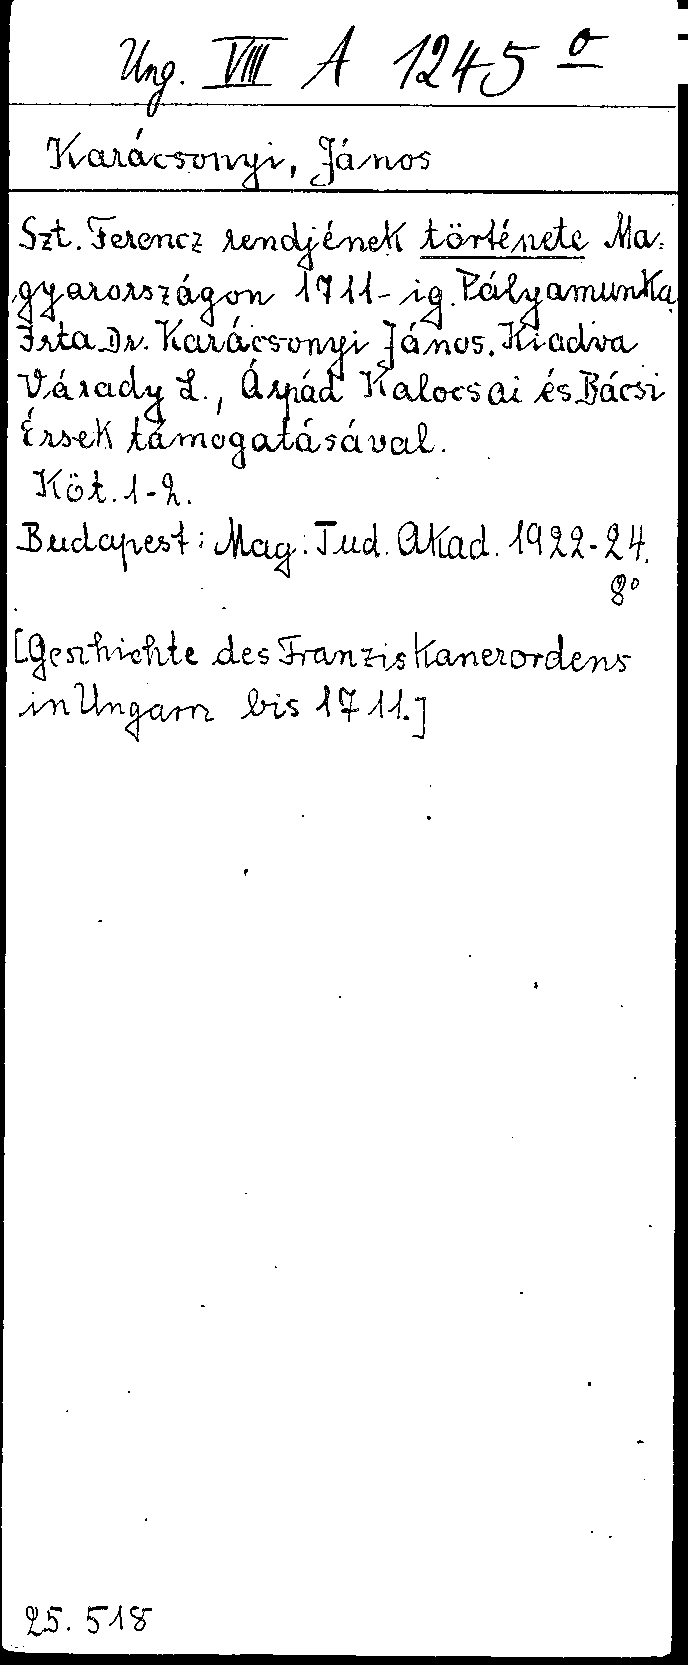 Ung. VIII A 1245 o
Karácsonyi, János
Szt. Ferencz rendjének története Ma-
gyarországon 1711-ig. Pályamunka
Irta Dr. Karácsonyi János. Kiadva
Várady L., Árpád Kalocsai és Bácsi
Érsek támogatásával.
Köt. 1-2.
Budapest: Mag. Tud. Akad. 1922-24.
8°
[Geschichte des Franziskanerordens
in Ungarn bis 1711.]
25. 518